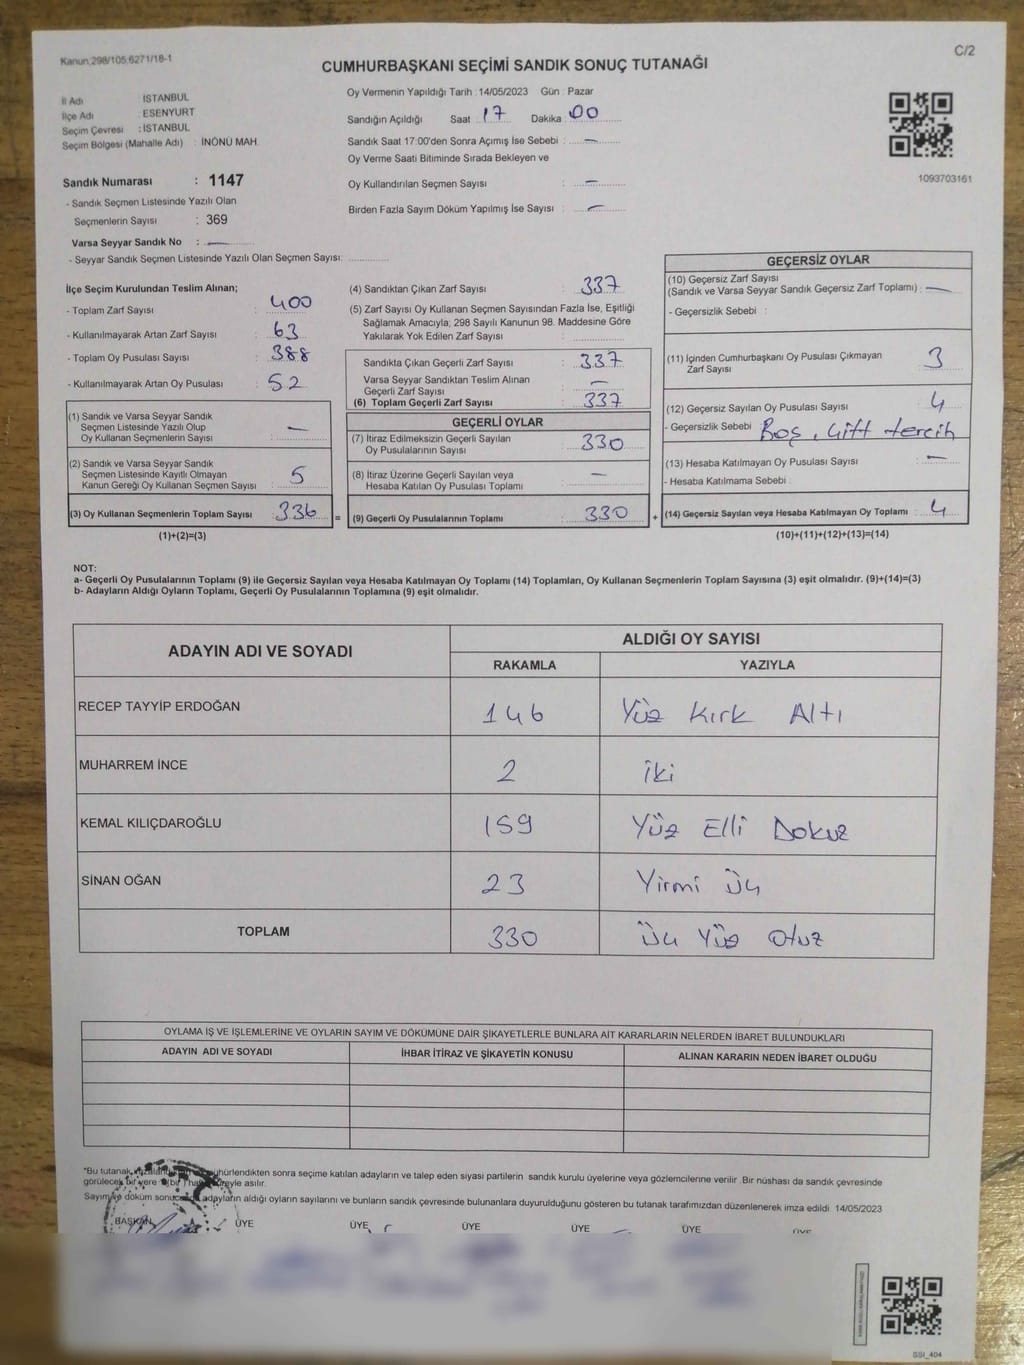 Kanun 298/105,6271/18-1
C/2
CUMHURBAŞKANI SEÇİMİ SANDIK SONUÇ TUTANAĞI
İl Adı İSTANBUL
İlçe Adı ESENYURT
Seçim Çevresi : İSTANBUL
Seçim Bölgesi (Mahalle Adı) : İNÖNÜ MAH.
Sandık Numarası : 1147
- Sandık Seçmen Listesinde Yazılı Olan
Seçmenlerin Sayısı : 369
Varsa Seyyar Sandık No : —
- Seyyar Sandık Seçmen Listesinde Yazılı Olan Seçmen Sayısı:
Oy Vermenin Yapıldığı Tarih : 14/05/2023 Gün : Pazar
Sandığın Açıldığı Saat 17 Dakika 00
Sandık Saat 17:00'den Sonra Açımış İse Sebebi : —
Oy Verme Saati Bitiminde Sırada Bekleyen ve
Oy Kullandırılan Seçmen Sayısı : —
Birden Fazla Sayım Döküm Yapılmış İse Sayısı : —
1093703161
İlçe Seçim Kurulundan Teslim Alınan;
- Toplam Zarf Sayısı : 400
- Kullanılmayarak Artan Zarf Sayısı : 63
- Toplam Oy Pusulası Sayısı : 388
- Kullanılmayarak Artan Oy Pusulası : 52
(1) Sandık ve Varsa Seyyar Sandık
Seçmen Listesinde Yazılı Olup
Oy Kullanan Seçmenlerin Sayısı : —
(2) Sandık ve Varsa Seyyar Sandık
Seçmen Listesinde Kayıtlı Olmayan
Kanun Gereği Oy Kullanan Seçmen Sayısı : 5
(3) Oy Kullanan Seçmenlerin Toplam Sayısı : 336 =
(1)+(2)=(3)
(4) Sandıktan Çıkan Zarf Sayısı : 337
(5) Zarf Sayısı Oy Kullanan Seçmen Sayısından Fazla İse, Eşitliği
Sağlamak Amacıyla; 298 Sayılı Kanunun 98. Maddesine Göre
Yakılarak Yok Edilen Zarf Sayısı :
Sandıkta Çıkan Geçerli Zarf Sayısı : 337
Varsa Seyyar Sandıktan Teslim Alınan
Geçerli Zarf Sayısı : —
(6) Toplam Geçerli Zarf Sayısı : 337
GEÇERLİ OYLAR
(7) İtiraz Edilmeksizin Geçerli Sayılan
Oy Pusulalarının Sayısı : 330
(8) İtiraz Üzerine Geçerli Sayılan veya
Hesaba Katılan Oy Pusulası Toplamı : —
(9) Geçerli Oy Pusulalarının Toplamı : 330 +
GEÇERSİZ OYLAR
(10) Geçersiz Zarf Sayısı
(Sandık ve Varsa Seyyar Sandık Geçersiz Zarf Toplamı) : —
- Geçersizlik Sebebi :
(11) İçinden Cumhurbaşkanı Oy Pusulası Çıkmayan
Zarf Sayısı : 3
(12) Geçersiz Sayılan Oy Pusulası Sayısı : 4
- Geçersizlik Sebebi Boş, Çift tercih
(13) Hesaba Katılmayan Oy Pusulası Sayısı : —
- Hesaba Katılmama Sebebi :
(14) Geçersiz Sayılan veya Hesaba Katılmayan Oy Toplamı : 4
(10)+(11)+(12)+(13)=(14)
NOT:
a- Geçerli Oy Pusulalarının Toplamı (9) ile Geçersiz Sayılan veya Hesaba Katılmayan Oy Toplamı (14) Toplamları, Oy Kullanan Seçmenlerin Toplam Sayısına (3) eşit olmalıdır. (9)+(14)=(3)
b- Adayların Aldığı Oyların Toplamı, Geçerli Oy Pusulalarının Toplamına (9) eşit olmalıdır.
ADAYIN ADI VE SOYADI ALDIĞI OY SAYISI
RAKAMLA YAZIYLA
RECEP TAYYİP ERDOĞAN 146 Yüz Kırk Altı
MUHARREM İNCE 2 iki
KEMAL KILIÇDAROĞLU 159 Yüz Elli Dokuz
SİNAN OĞAN 23 Yirmi Üç
TOPLAM 330 Üç Yüz Otuz
OYLAMA İŞ VE İŞLEMLERİNE VE OYLARIN SAYIM VE DÖKÜMÜNE DAİR ŞİKAYETLERLE BUNLARA AİT KARARLARIN NELERDEN İBARET BULUNDUKLARI
ADAYIN ADI VE SOYADI İHBAR İTİRAZ VE ŞİKAYETİN KONUSU ALINAN KARARIN NEDEN İBARET OLDUĞU
"Bu tutanak mühürlendikten sonra seçime katılan adayların ve talep eden siyasi partilerin sandık kurulu üyelerine veya gözlemcilerine verilir. Bir nüshası da sandık çevresinde
görülecek bir yere asılır.
Sayım ve döküm sonucu adayların aldığı oyların sayılarını ve bunların sandık çevresinde bulunanlara duyurulduğunu gösteren bu tutanak tarafımızdan düzenlenerek imza edildi. 14/05/2023
BAŞKAN ÜYE ÜYE ÜYE ÜYE ÜYE ÜYE
SSI_404